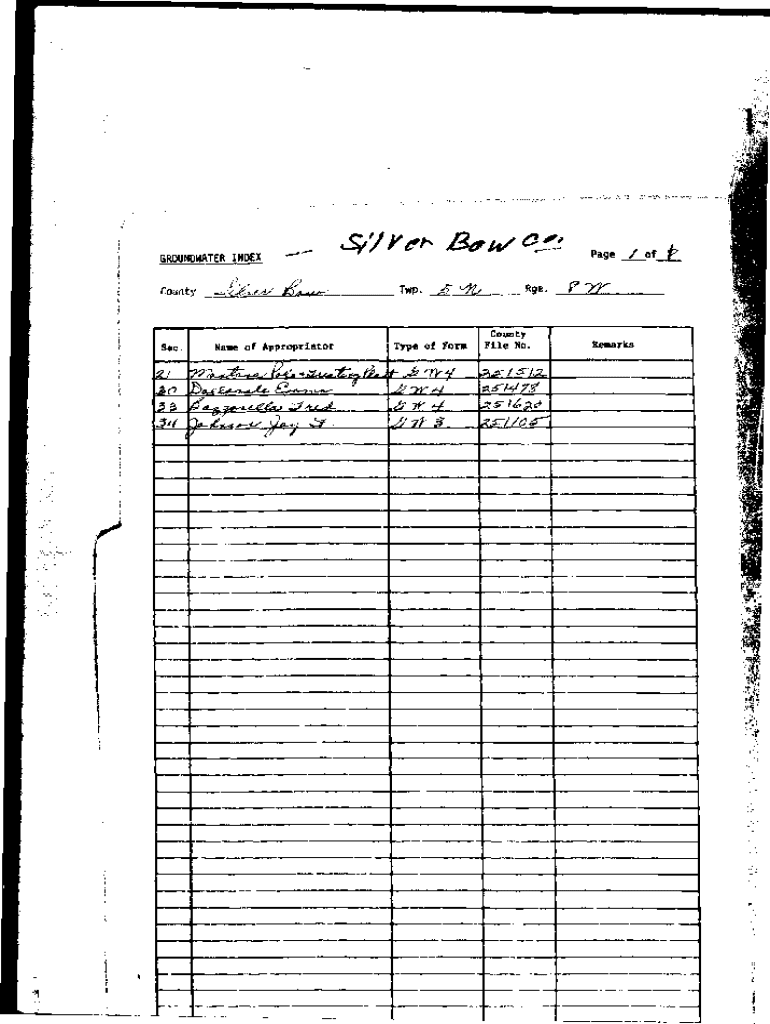 GROUNDWATER INDEX — Silver Bow Co. Page 1 of 8
County Silver Bow Twp. 5 N Rge. 8 W
Sec. Name of Appropriator Type of Form County File No. Remarks
21 Pole & Treating Plant G W 4 251512
30 Emma G W 4 251478
33 Fred G W 4 251620
34 Johnson Jay G W 3 251105